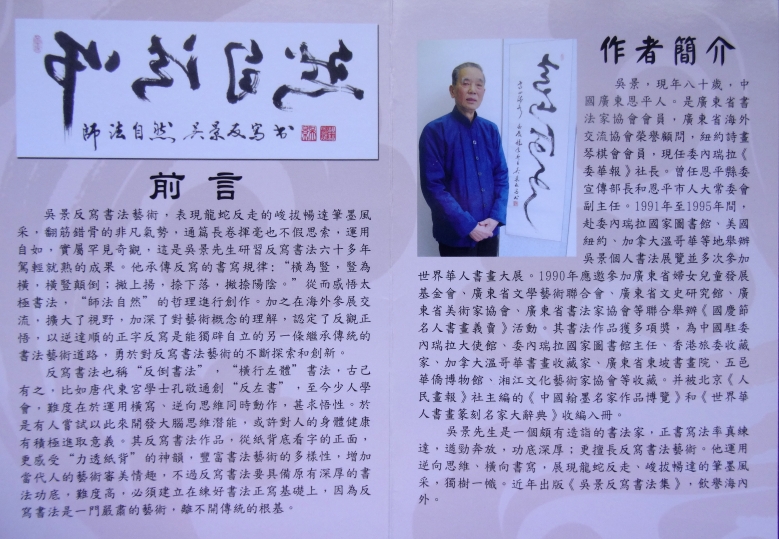 師法自然 吳景反寫书
前言
吳景反寫書法藝術，表現龍蛇反走的峻拔暢達筆墨風
采，翻筋錯骨的非凡氣勢，通篇長卷揮毫也不假思索，運用
自如，實屬罕見奇觀，這是吳景先生研習反寫書法六十多年
駕輕就熟的成果。他承傳反寫的書寫規律：“橫為豎，豎為
橫，橫豎顛倒；撇上揚，捺下落，撇捺陽陰。”從而感悟太
極書法，“師法自然”的哲理進行創作。加之在海外參展交
流，擴大了視野，加深了對藝術概念的理解，認定了反觀正
悟，以逆達順的正字反寫是能獨辟自立的另一條繼承傳統的
書法藝術道路，勇於對反寫書法藝術的不斷探索和創新。
反寫書法也稱“反倒書法”，“橫行左體”書法，古已
有之，比如唐代東宮學士孔敬通創“反左書”，至今少人學
會，難度在於運用橫寫、逆向思維同時動作，甚求悟性。於
是有人嘗試以此來開發大腦思維潛能，或許對人的身體健康
有積極進取意義。其反寫書法作品，從紙背底看字的正面，
更感受“力透紙背”的神韻，豐富書法藝術的多樣性，增加
當代人的藝術審美情趣，不過反寫書法要具備原有深厚的書
法功底，難度高，必須建立在練好書法正寫基礎上，因為反
寫書法是一門嚴肅的藝術，離不開傳統的根基。
作者簡介
吳景，現年八十歲，中
國廣東恩平人。是廣東省書
法家協會會員，廣東省海外
交流協會榮譽顧問，紐約詩畫
琴棋會會員，現任委內瑞拉《
委華報》社長。曾任恩平縣委
宣傳部長和恩平市人大常委會
副主任。1991年至1995年間，
赴委內瑞拉國家圖書館、美國
紐約、加拿大溫哥華等地舉辦
吳景個人書法展覽並多次參加
世界華人書畫大展。1990年應邀參加廣東省婦女兒童發展
基金會、廣東省文學藝術聯合會、廣東省文史研究館、廣
東省美術家協會、廣東省書法家協會等聯合舉辦《國慶節
名人書畫義賣》活動。其書法作品獲多項獎，為中國駐委
內瑞拉大使館、委內瑞拉國家圖書館主任、香港旅委收藏
家、加拿大溫哥華書畫收藏家、廣東省東坡書畫院、五邑
華僑博物館、湘江文化藝術家協會等收藏。并被北京《人
民畫報》社主編的《中國翰墨名家作品博覽》和《世界華
人書畫篆刻名家大辭典》收編入冊。
吳景先生是一個頗有造詣的書法家，正書寫法率真練
達，遒勁奔放，功底深厚；更擅長反寫書法藝術。他運用
逆向思維、橫向書寫，展現龍蛇反走、峻拔暢達的筆墨風
采，獨樹一幟。近年出版《吳景反寫書法集》，飲譽海內
外。